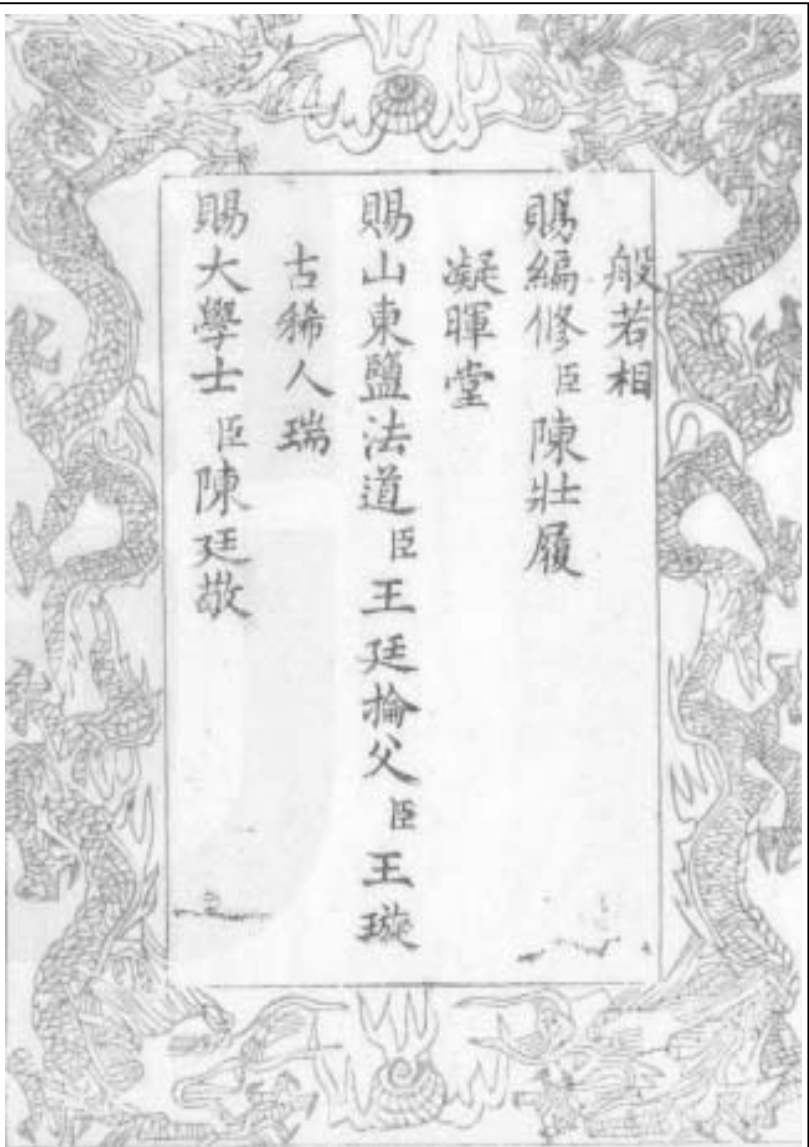 般若相
賜編修臣陳壯履
凝暉堂
賜山東鹽法道臣王廷掄父臣王璇
古稀人瑞
賜大學士臣陳廷敬